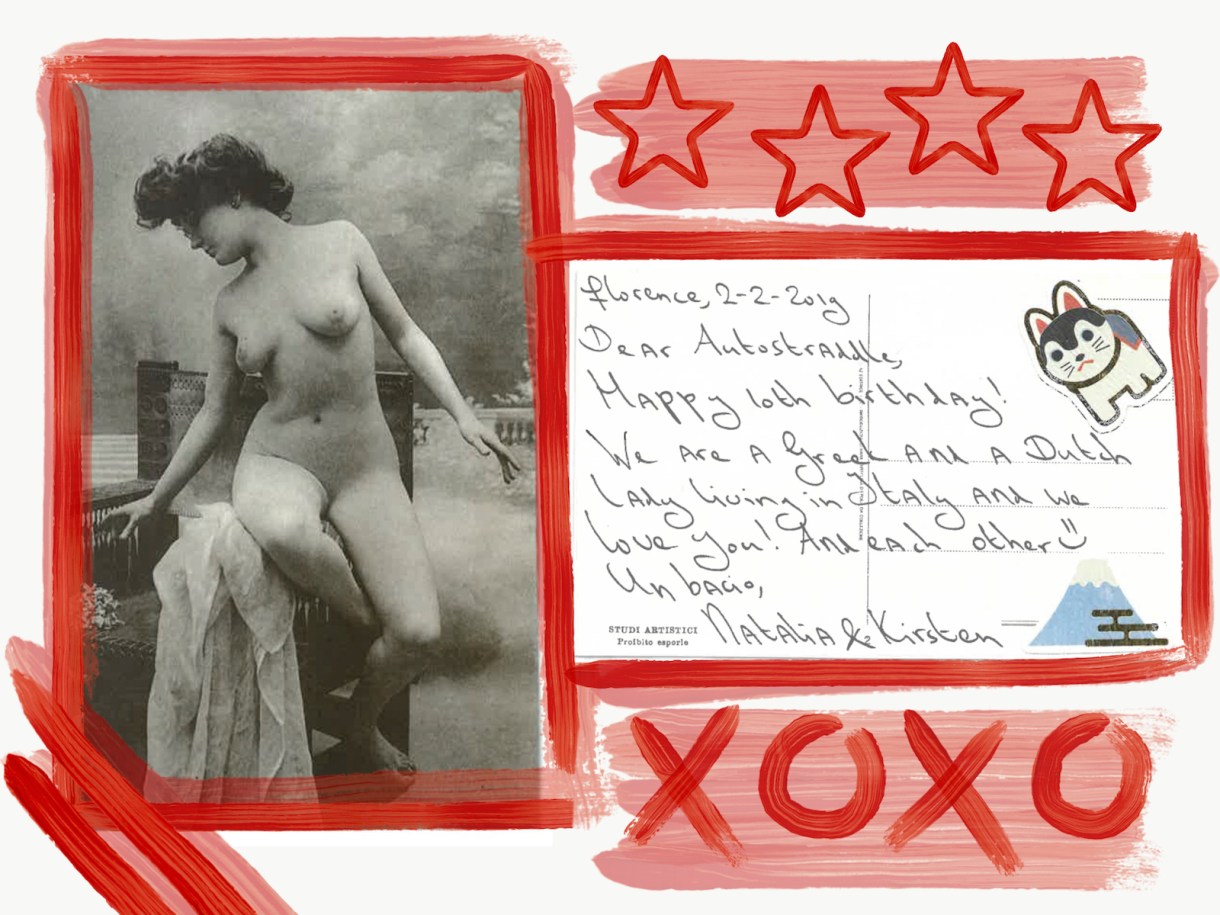 Florence, 2-2-2019
Dear Autostraddle,
Happy 10th birthday!
We are a Greek and a Dutch
Lady living in Italy and we
love you! And each other
Un bacio,
Natalia & Kirsten
STUDI ARTISTICI
Proibito esporlo
XOXO